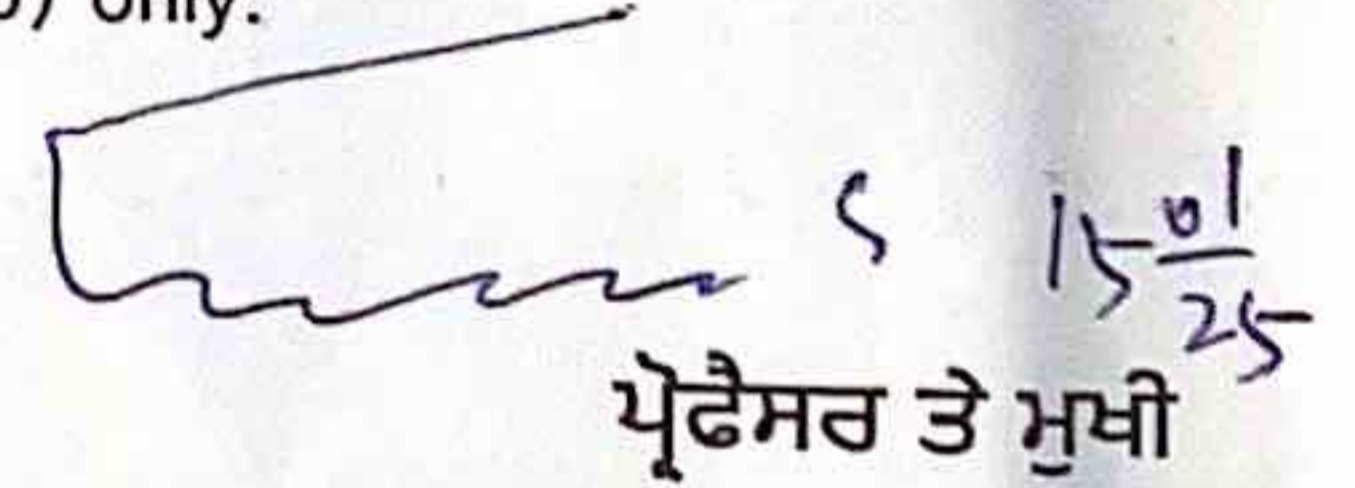 ) only.
15 01/25
ਪ੍ਰੋਫੈਸਰ ਤੇ ਮੁਖੀ